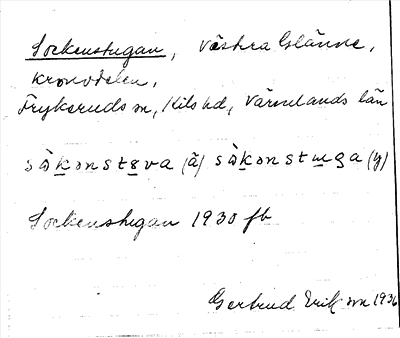 Sockenstugan, Västra Glänne,
kronodelen,
Frykeruds sn, Kils hd, Värmlands län
sɔ̀kənstɵva (ä) sɔ̀kənstɯga (y)
Sockenstugan 1930 fb
Gertrud Erikson 1936